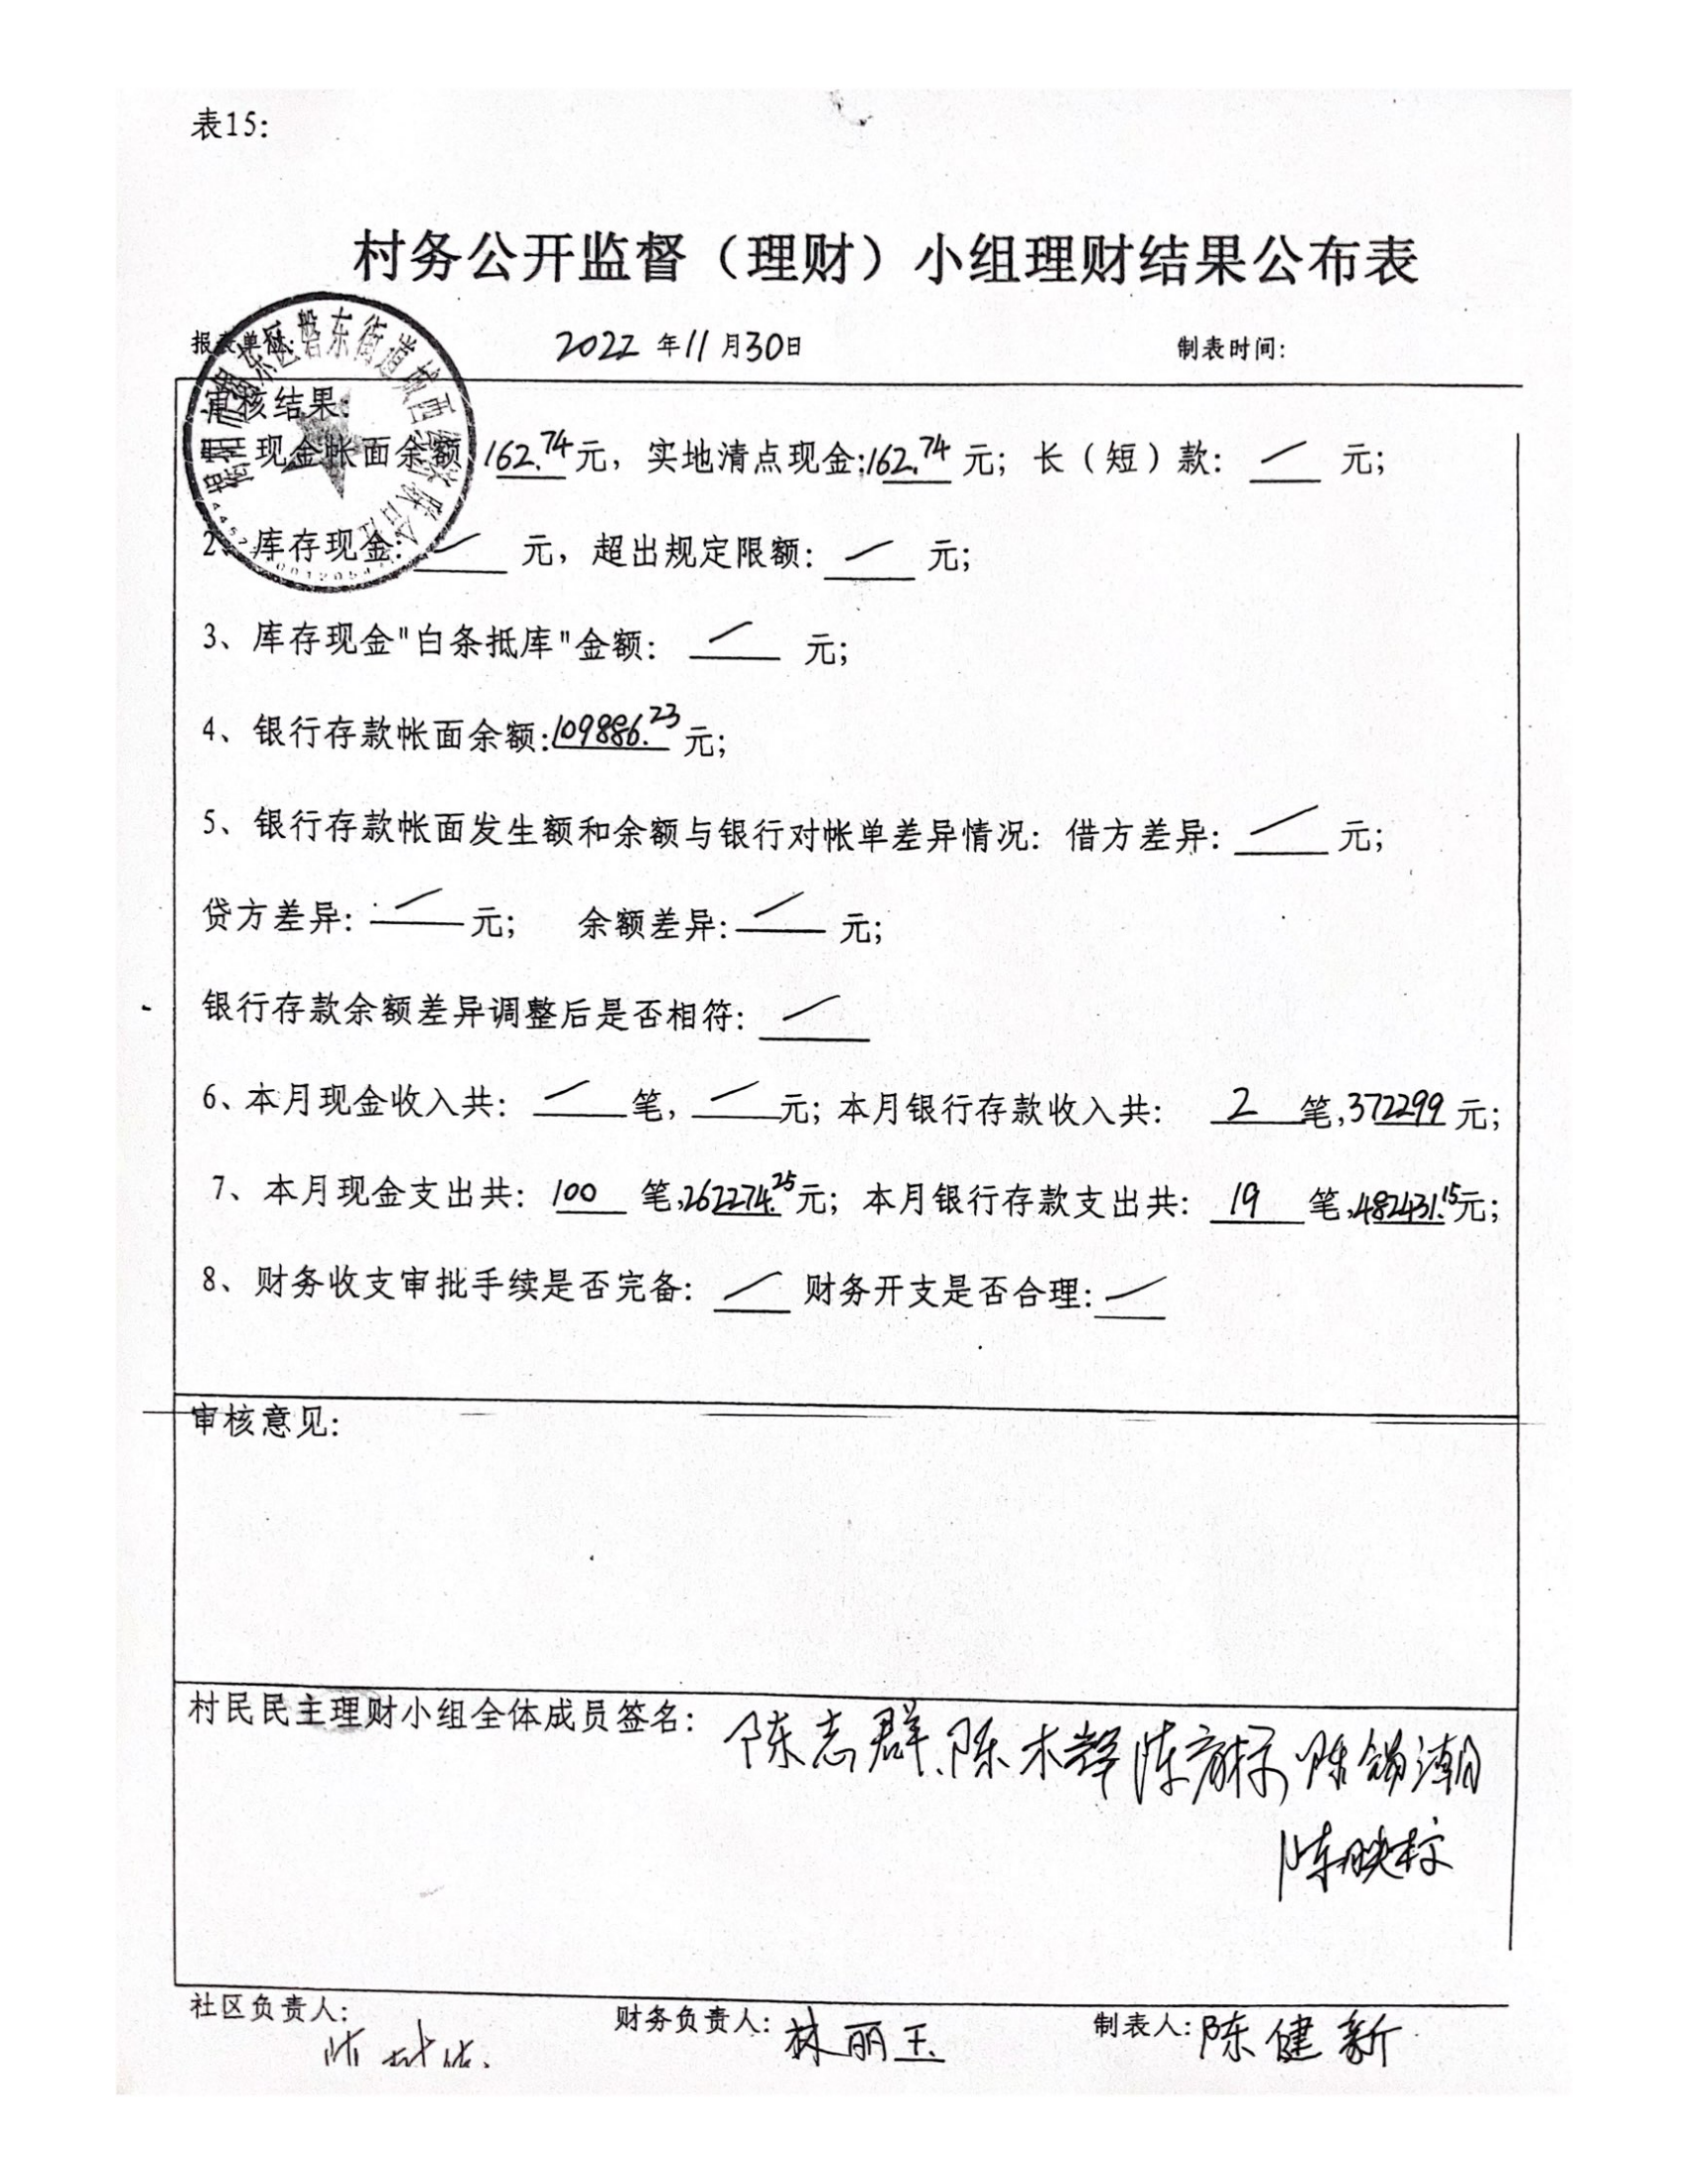 表15:
村务公开监督（理财）小组理财结果公布表
报表单位: 2022 年 11 月 30 日 制表时间:
审核结果:
现金帐面余额 162.74 元, 实地清点现金: 162.74 元; 长（短）款: / 元;
2、库存现金: / 元, 超出规定限额: / 元;
3、库存现金"白条抵库"金额: / 元;
4、银行存款帐面余额: 109886.23 元;
5、银行存款帐面发生额和余额与银行对帐单差异情况: 借方差异: / 元;
贷方差异: / 元; 余额差异: / 元;
银行存款余额差异调整后是否相符: /
6、本月现金收入共: / 笔, / 元; 本月银行存款收入共: 2 笔, 372299 元;
7、本月现金支出共: 100 笔, 262274.25 元; 本月银行存款支出共: 19 笔, 482431.15 元;
8、财务收支审批手续是否完备: / 财务开支是否合理: /
审核意见:
村民民主理财小组全体成员签名: 陈志群、陈木 陈 陈 潮
陈映标
社区负责人: 财务负责人: 林丽玉 制表人: 陈健新